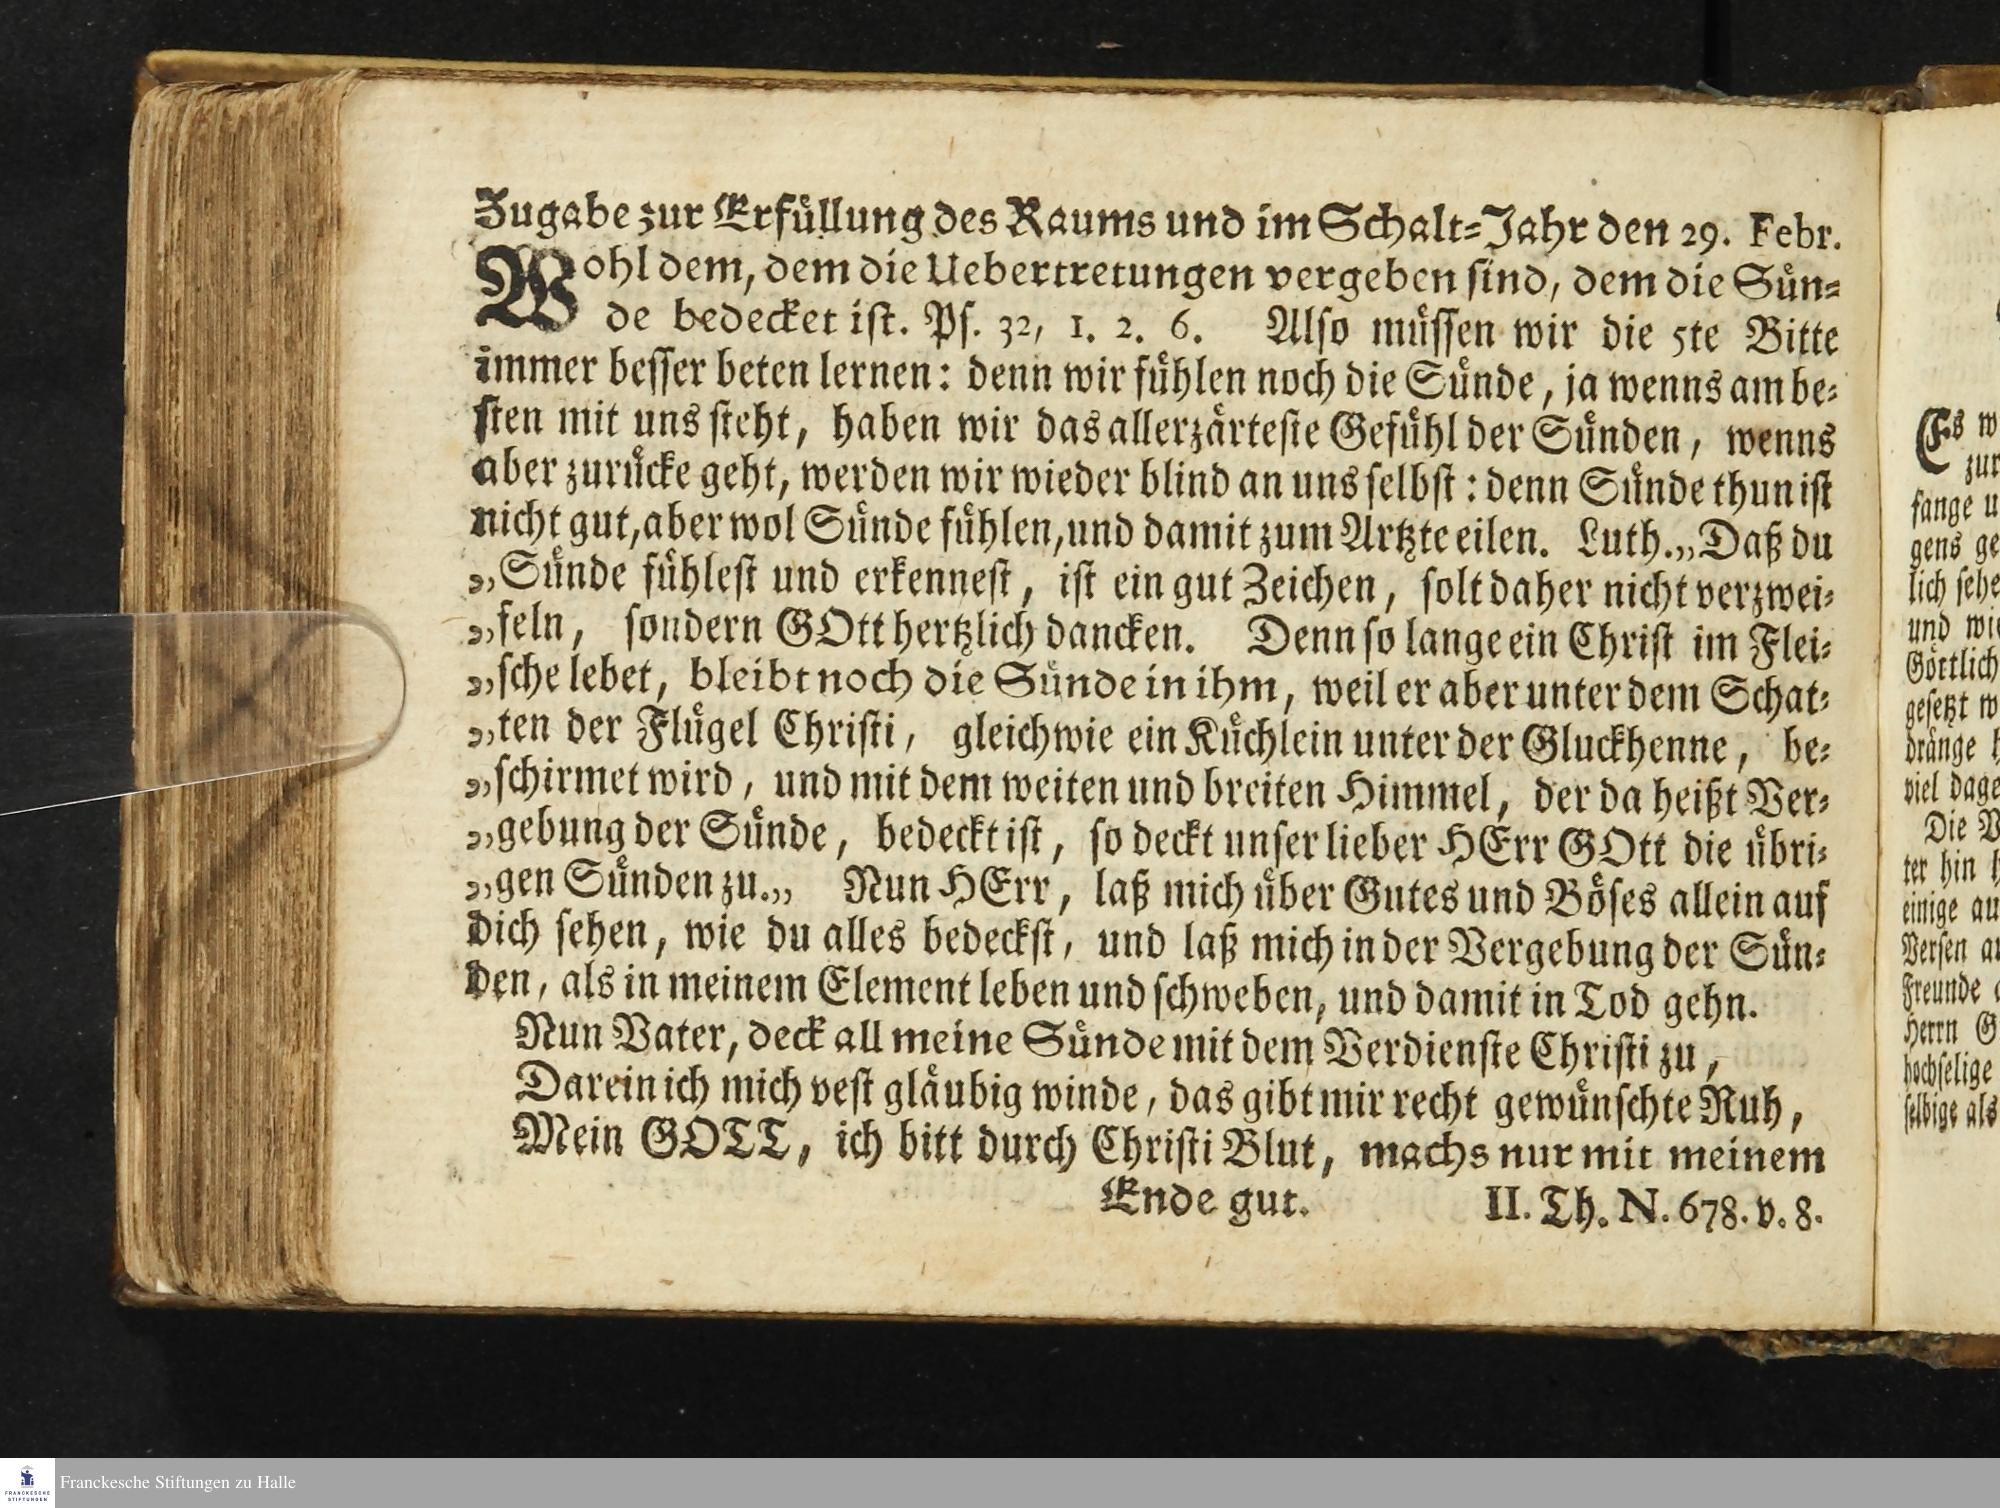 Zugabe zur Erfüllung des Raums und im Schalt-Jahr den 29. Febr.
Wohl dem, dem die Uebertretungen vergeben sind, dem die Sün-
de bedecket ist. Ps. 32, 1. 2. 6. Also müssen wir die 5te Bitte
immer besser beten lernen: denn wir fühlen noch die Sünde, ja wenns am be-
sten mit uns steht, haben wir das allerzärteste Gefühl der Sünden, wenns
aber zurücke geht, werden wir wieder blind an uns selbst: denn Sünde thun ist
nicht gut, aber wol Sünde fühlen, und damit zum Artzte eilen. Luth. „Daß du
„Sünde fühlest und erkennest, ist ein gut Zeichen, solt daher nicht verzwei-
„feln, sondern GOtt hertzlich dancken. Denn so lange ein Christ im Flei-
„sche lebet, bleibt noch die Sünde in ihm, weil er aber unter dem Schat-
„ten der Flügel Christi, gleichwie ein Küchlein unter der Gluckhenne, be-
„schirmet wird, und mit dem weiten und breiten Himmel, der da heißt Ver-
„gebung der Sünde, bedeckt ist, so deckt unser lieber HErr GOtt die übri-
„gen Sünden zu.„ Nun HErr, laß mich über Gutes und Böses allein auf
Dich sehen, wie du alles bedeckst, und laß mich in der Vergebung der Sün-
den, als in meinem Element leben und schweben, und damit in Tod gehn.
Nun Vater, deck all meine Sünde mit dem Verdienste Christi zu,
Darein ich mich vest gläubig winde, das gibt mir recht gewünschte Ruh,
Mein GOTT, ich bitt durch Christi Blut, machs nur mit meinem
Ende gut. II. Th. N. 678. v. 8.
Es w
zur
fange u
gens ge
lich sehe
und wie
Göttlich
gesetzt w
dränge h
viel dage
Die V
ter hin h
einige au
Versen au
Freunde
Herrn G
hochselige
selbige als
Franckesche Stiftungen zu Halle
FRANCKESCHE
STIFTUNGEN